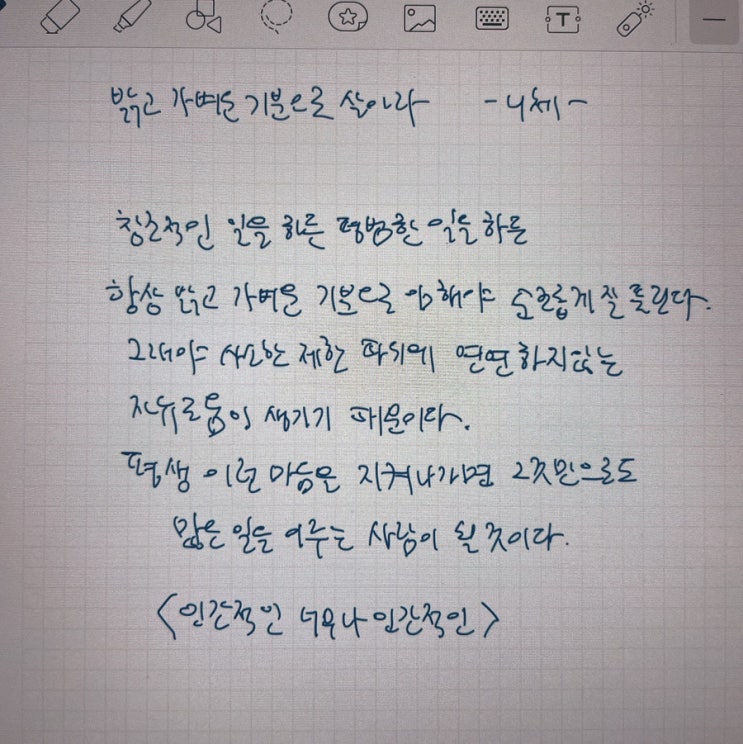 밝고 가벼운 기분으로 살아라 - 니체 -
창조적인 일을 하든 평범한 일을 하든
항상 밝고 가벼운 기분으로 임해야 순조롭게 잘 풀린다.
그래야 사소한 제한 따위에 연연하지않는
자유로움이 생기기 때문이다.
평생 이런 마음을 지켜나가면 그것만으로도
많은 일을 이루는 사람이 될 것이다.
<인간적인 너무나 인간적인>